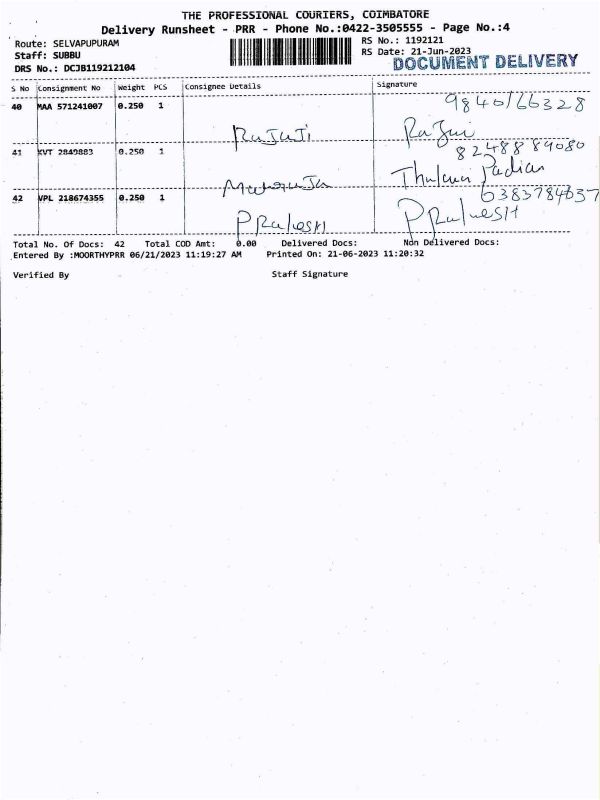 THE PROFESSIONAL COURIERS, COIMBATORE
Delivery Runsheet - PRR - Phone No.:0422-3505555 - Page No.:4
Route: SELVAPUPURAM
Staff: SUBBU
DRS No.: DCJB119212104
RS No.: 1192121
RS Date: 21-Jun-2023
DOCUMENT DELIVERY
S No Consignment No Weight PCS Consignee Details Signature
9840166328
40 MAA 571241007 0.250 1
RaJuJi
8248889080
41 KVT 2849883 0.250 1
6383784637
42 VPL 218674355 0.250 1
Total No. Of Docs: 42 Total COD Amt: 0.00 Delivered Docs: Non Delivered Docs:
Entered By :MOORTHYPRR 06/21/2023 11:19:27 AM Printed On: 21-06-2023 11:20:32
Verified By Staff Signature